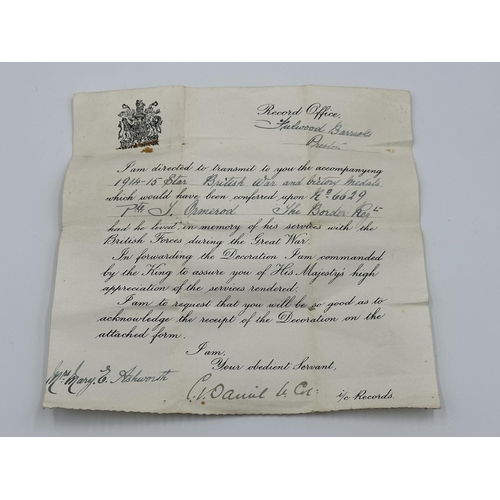 Record Office,
Fulwood Barracks
Preston
I am directed to transmit to you the accompanying
1914-15 Star British War and Victory Medals
which would have been conferred upon No 6629
Pte J. Ormerod The Border Regt
had he lived, in memory of his services with the
British Forces during the Great War.
In forwarding the Decoration I am commanded
by the King to assure you of His Majesty's high
appreciation of the services rendered.
I am to request that you will be so good as to
acknowledge the receipt of the Decoration on the
attached form.
I am,
Your obedient Servant,
Mrs Mary E. Ashworth
Daniel Lt Col:
i/c Records.